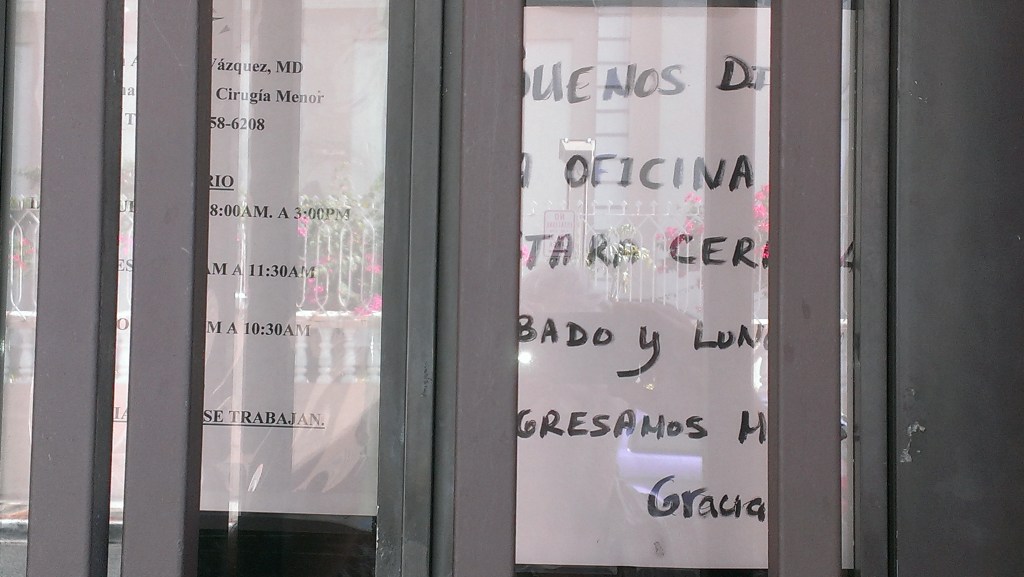 Vázquez, MD
Cirugía Menor
58-6208
RIO
8:00AM. A 3:00PM
AM A 11:30AM
M A 10:30AM
SE TRABAJAN.
BUENOS DI
A OFICINA
TARA CERR
BADO y LUN
GRESAMOS M
Gracia